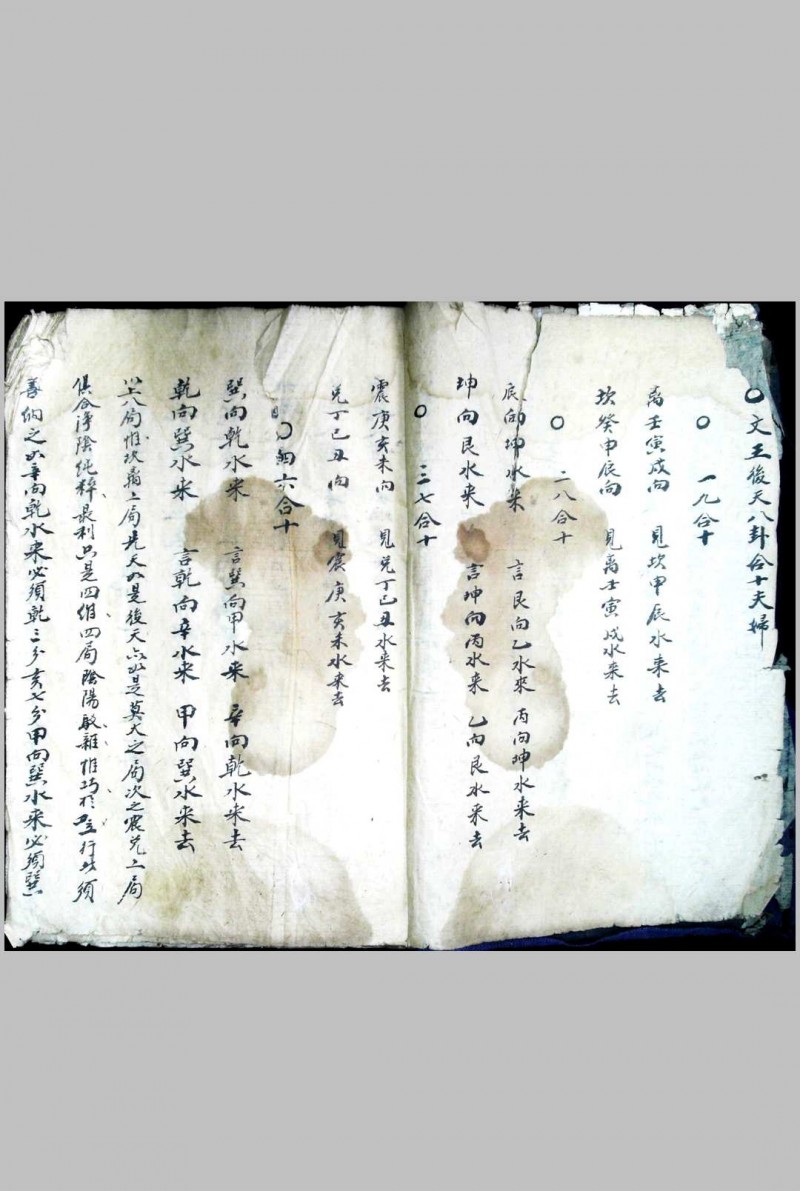 ○文王後天八卦合十夫婦
○ 一九合十
离壬寅戌向 見坎甲辰水来去
坎癸申辰向 見离壬寅戌水来去
○ 二八合十
艮向坤水来 言艮向乙水來 丙向坤水来去
坤向艮水来 言坤向丙水来 乙向艮水来去
○ 三七合十
震庚亥未向 見兑丁巳丑水来去
兑丁巳丑向 見震庚亥未水来去
○四六合十
巽向乾水来 言巽向甲水来 辛向乾水来去
乾向巽水来 言乾向辛水来 甲向巽水来去
以上八局惟坎离二局先天如是後天亦如是莫大之局次之震兑二局
俱合淨陰純粹最利只是四維四局陰陽駁雜惟巧於立行者須
善納之如辛向乾水来必須乾三分亥七分甲向巽水来必須巽